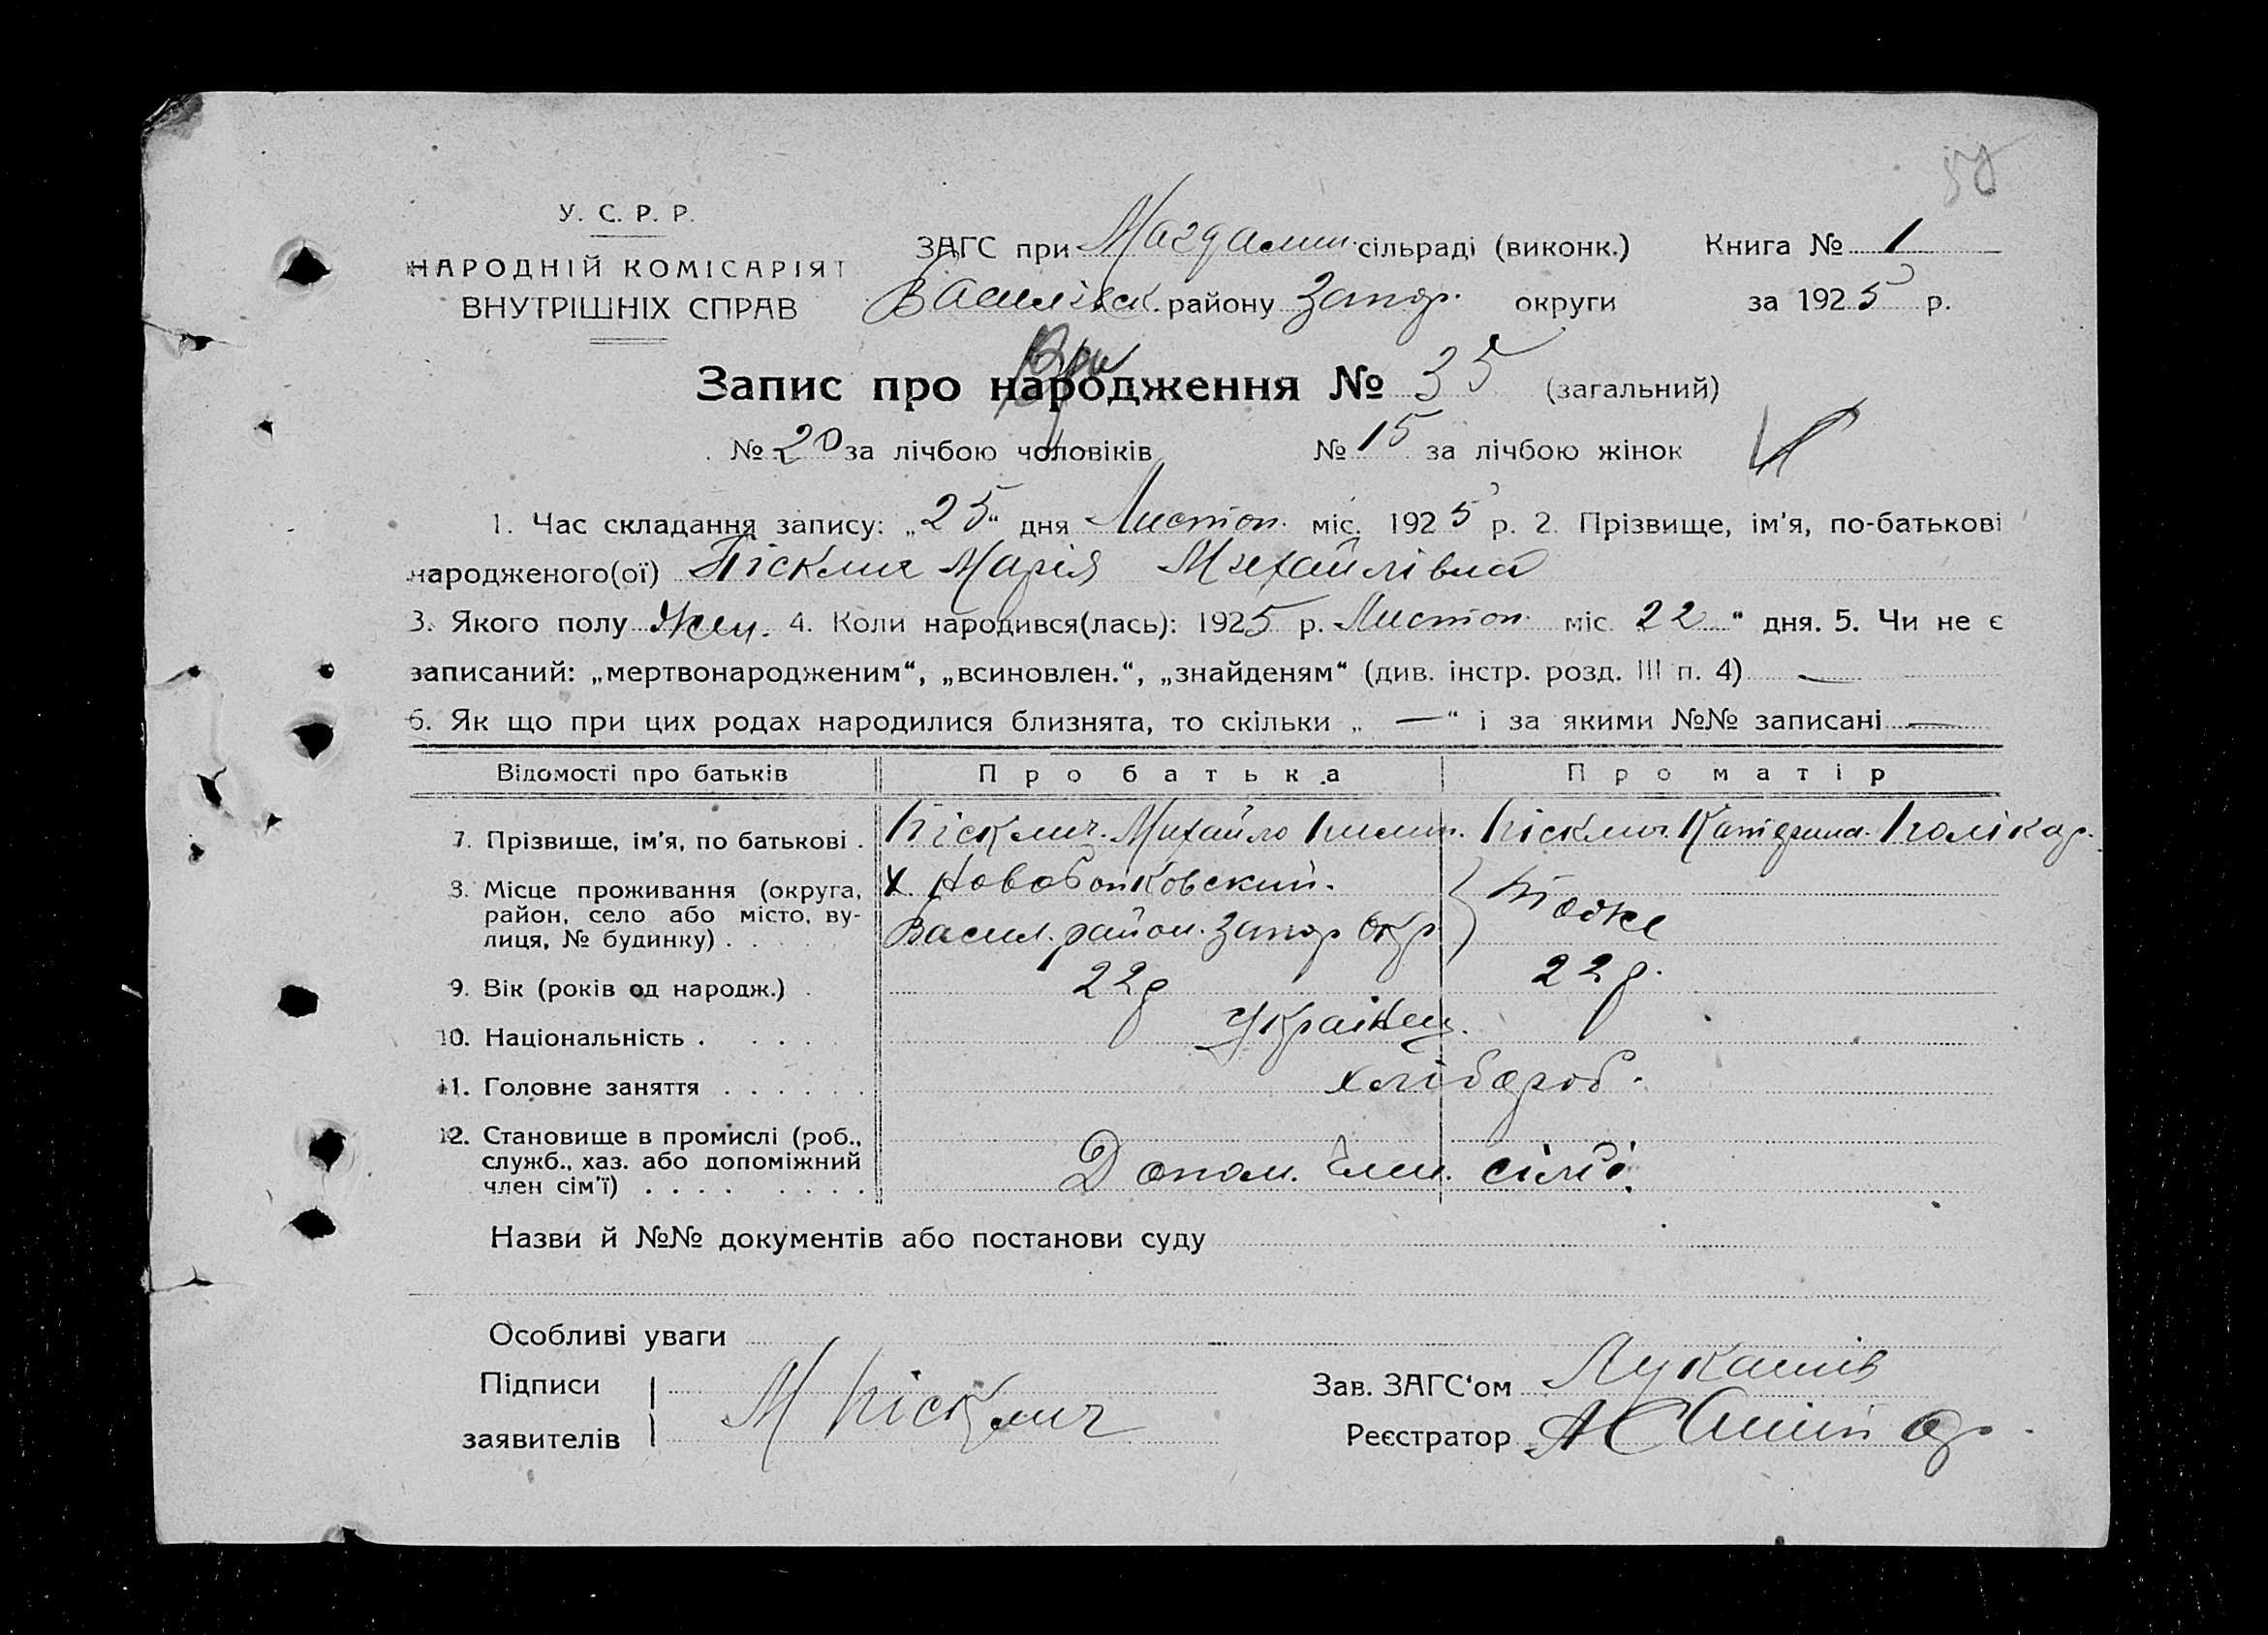 50
У. С. Р. Р.
НАРОДНІЙ КОМІСАРІЯТ
ВНУТРІШНІХ СПРАВ
ЗАГС при Магдалин. сільраді (виконк.) Книга № 1
Василівск. району Запор. округи за 1925 р.
Запис про народження № 35 (загальний)
№ 20 за лічбою чоловіків № 15 за лічбою жінок
1. Час складання запису: „25“ дня Листоп. міс. 1925 р. 2. Прізвище, ім'я, по-батькові
народженого(ої) Пісклич Марія Михайлівна
3. Якого полу Жен. 4. Коли народився(лась): 1925 р. Листоп. міс. 22 “ дня. 5. Чи не є
записаний: „мертвонародженим“, „всиновлен.“, „знайденям“ (див. інстр. розд. III п. 4) —
6. Як що при цих родах народилися близнята, то скільки „ — “ і за якими №№ записані —
Відомості про батьків Про батька Про матір
7. Прізвище, ім'я, по батькові . Пісклич. Михайло Пилип. Пісклич. Катерина. Полікар.
8. Місце проживання (округа, район, село або місто, вулиця, № будинку) . х. Новобойковский.
Васил. район. Запор Окр. Тоже
9. Вік (років од народж.) . 22 р 22 р.
10. Національність . Українец.
11. Головне заняття . хлібороб.
12. Становище в промислі (роб.,
служб., хаз. або допоміжний
член сім'ї) . Допом. Член. сімї.
Назви й №№ документів або постанови суду
Особливі уваги
Підписи
заявителів М Пісклич
Зав. ЗАГС‘ом Лукашів
Реєстратор